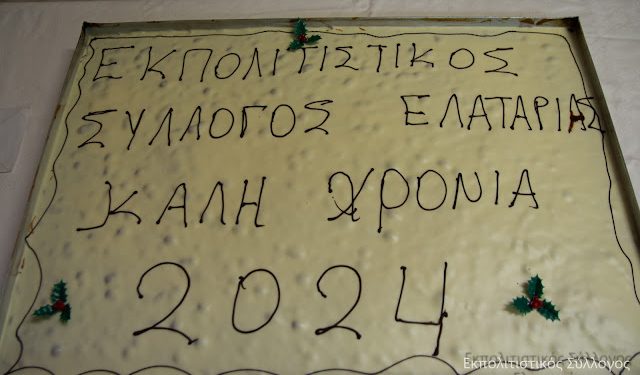 ΕΚΠΟΛΙΤΙΣΤΙΚΟΣ
ΣΥΛΛΟΓΟΣ ΕΛΑΤΑΡΙΑΣ
ΚΑΛΗ ΧΡΟΝΙΑ
2024
Εκπολιτιστικός Σύλλογος
Εκπολιτιστικός Σύλλογος